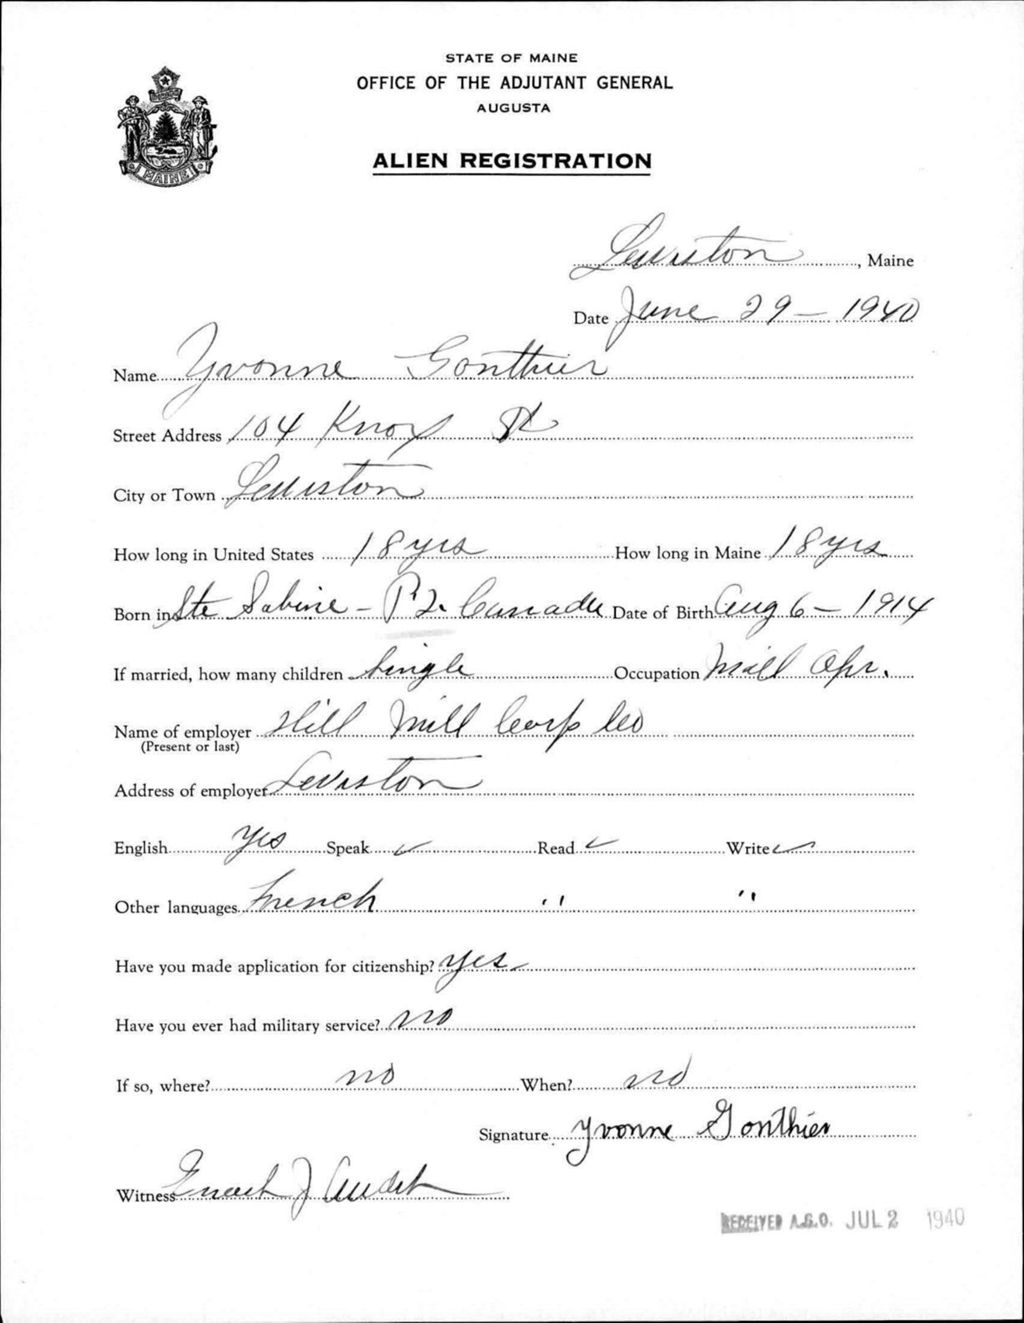 STATE OF MAINE
OFFICE OF THE ADJUTANT GENERAL
AUGUSTA
ALIEN REGISTRATION
MAINE
Lewiston, Maine
Date June 29 – 1940
Name Yvonne Gonthier
Street Address 104 Knox St
City or Town Lewiston
How long in United States 18 yrs How long in Maine 18 yrs
Born in Ste Sabine – P.Q. Canada Date of Birth Aug 6 – 1914
If married, how many children Single Occupation Mill Opr.
Name of employer Hill Mill Corp Co
(Present or last)
Address of employer Lewiston
English yes Speak ✓ Read ✓ Write ✓
Other languages French " "
Have you made application for citizenship? yes
Have you ever had military service? no
If so, where? no When? no
Signature Yvonne Gonthier
Witness J Audet
RECEIVED A.G.O. JUL 2 1940